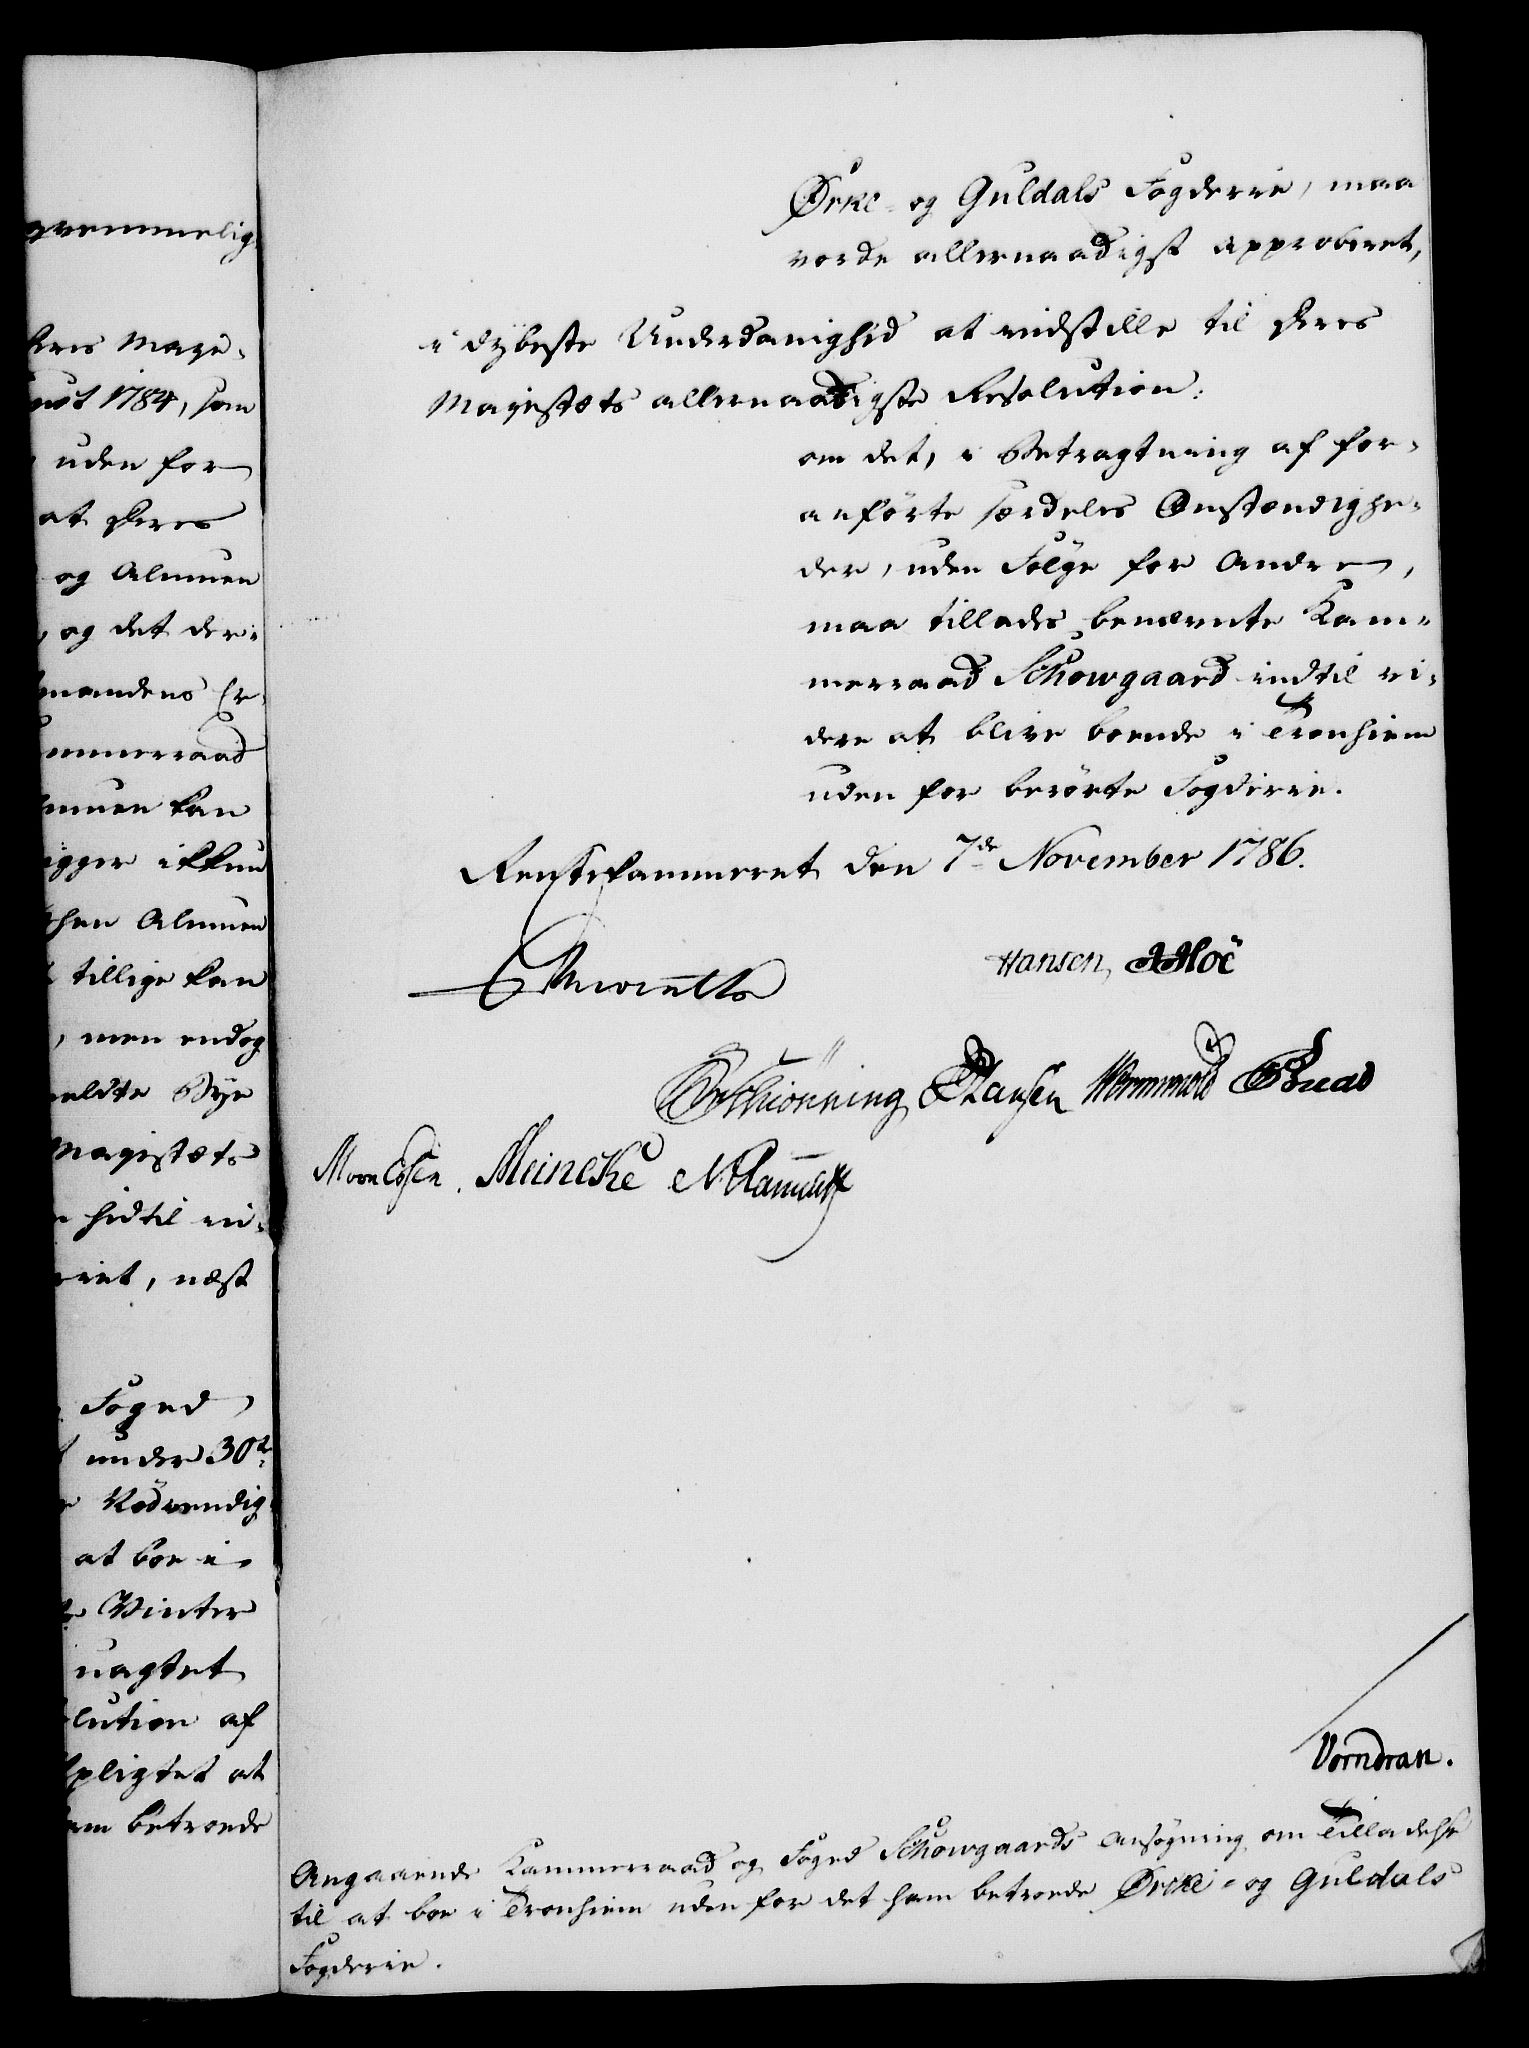 gvemmelig
deres Maje-
nst 1784, som
uden for
at deres
og Almuen
, og det der-
mandens Er-
ammerraad
muen kan
igger ikkun
hen Almuen
tillige kan
, men endog
meldte Bye
Majestæts
hidtil vi-
riet, næst
Foged
under 30te
Nødvendig-
at boe i
Vinter
uagtet
lution af
pligtet at
ham betroede
Ørke- og Guldals Fogderie, maa
vorde allernaadigst approberet,
i dybeste Underdanighed at indstille til Deres
Majestæts allernaadigste Resolution:
om det, i Betragtning af for-
anførte særdeles Omstændighe-
der, uden Følge for Andre,
maa tillades benævnte Kam-
merraad Schowgaard indtil vi-
dere at blive boende i Tronhiem
uden for berørte Fogderie.
Rentekammeret den 7de November 1786.
Hansen, Moe
Schiönning Hansen Wormskiold
Meincke
Vorndran.
Angaaende Kammerraad og Foged Schowgaards Ansøgning om Tilladelse
til at boe i Tronhiem uden for det ham betroede Ørke- og Guldals
Fogderie.